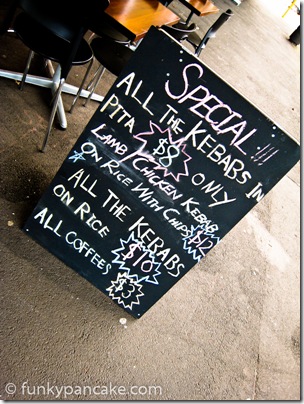 SPECIAL!!!
ALL THE KEBABS IN
PITTA $8 ONLY
LAMB/CHICKEN KEBAB
ON RICE WITH CHIPS $12
ALL THE KEBABS
ON RICE $10
ALL COFFEES $3
© funkypancake.com